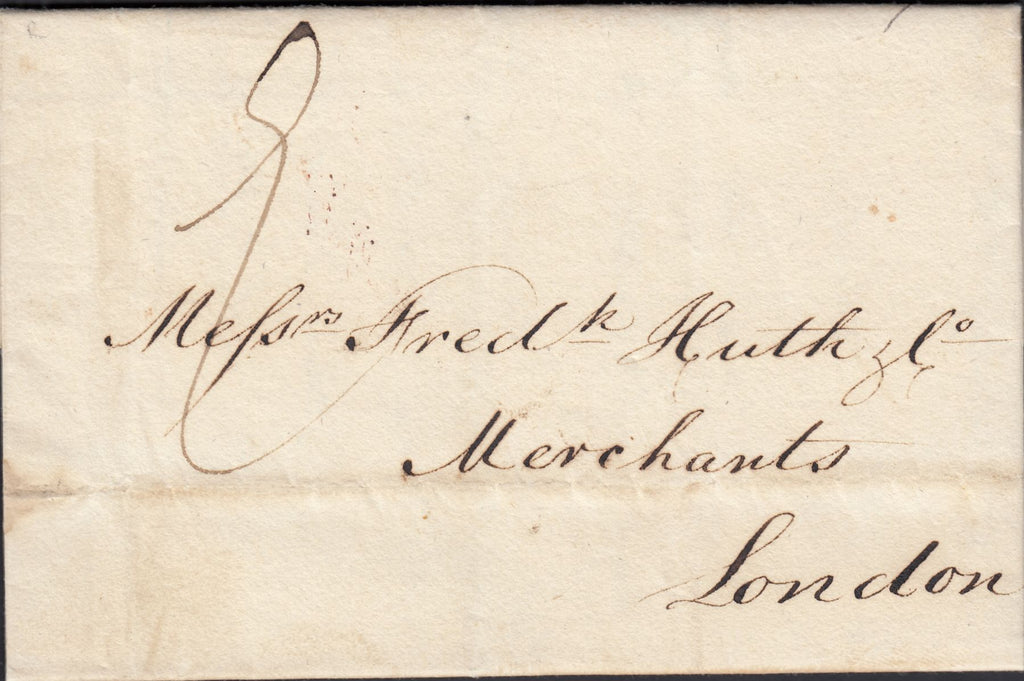 Meſsrs Fredk Huth & Co
Merchants
London